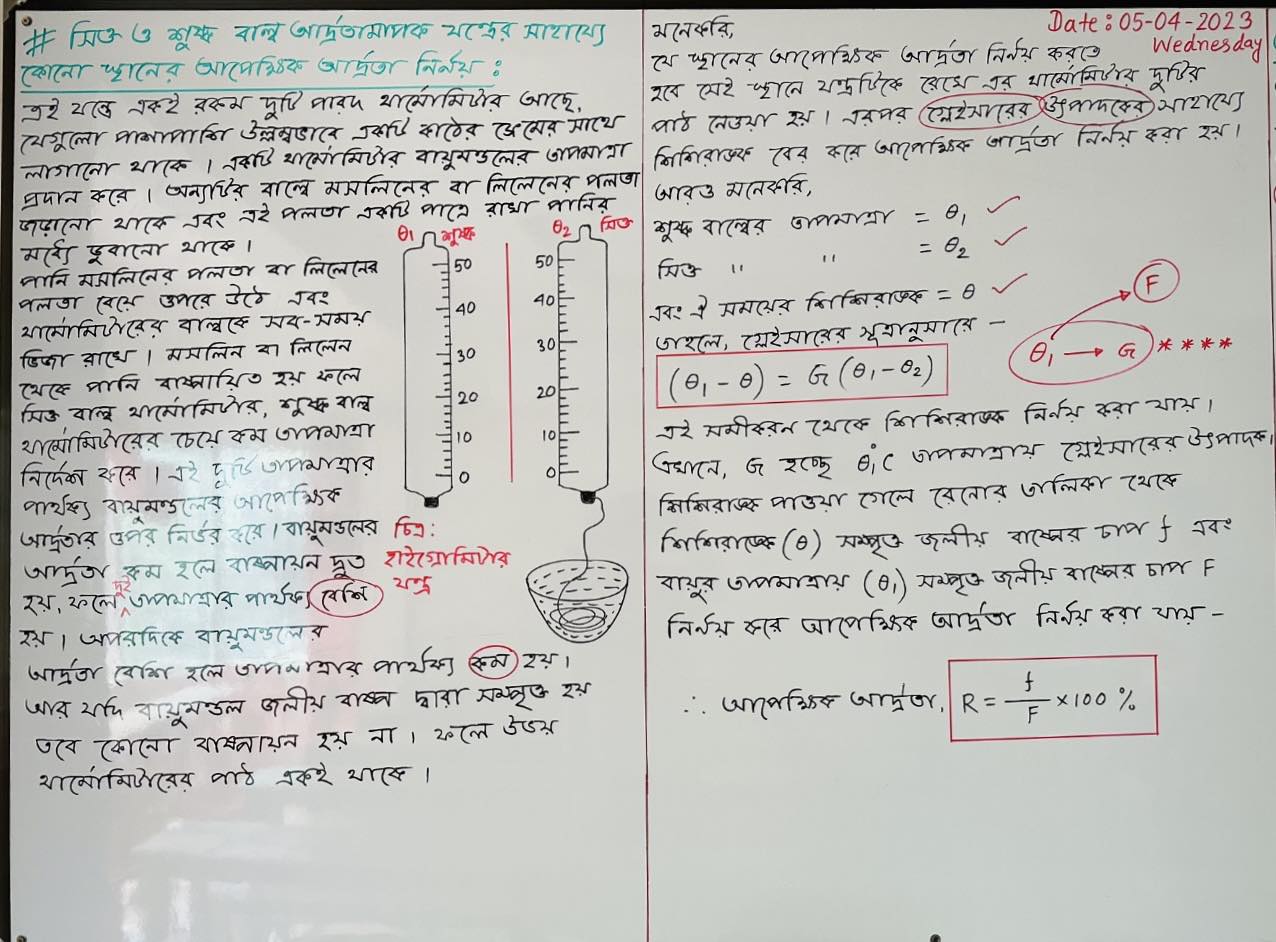 # সিক্ত ও শুষ্ক বাল্ব আর্দ্রতামাপক যন্ত্রের সাহায্যে
কোনো স্থানের আপেক্ষিক আর্দ্রতা নির্নয় :
এই যন্ত্রে একই রকম দুটি পারদ থার্মোমিটার আছে,
যেগুলো পাশাপাশি উল্লম্বভাবে একটি কাঠের ফ্রেমের সাথে
লাগানো থাকে । একটি থার্মোমিটার বায়ুমন্ডলের তাপমাত্রা
প্রদান করে । অন্যটির বাল্বে মসলিনের বা লিলেনের পলতা
জড়ানো থাকে এবং এই পলতা একটি পাত্রে রাখা পানির
মধ্যে ডুবানো থাকে ।
পানি মসলিনের পলতা বা লিলেনের
পলতা বেয়ে ওপরে উঠে এবং
থার্মোমিটারের বাল্বকে সব-সময়
ভিজা রাখে । মসলিন বা লিলেন
থেকে পানি বাষ্পায়িত হয় ফলে
সিক্ত বাল্ব থার্মোমিটার, শুষ্ক বাল্ব
থার্মোমিটারের চেয়ে কম তাপমাত্রা
নির্দেশ করে । এই দুটি তাপমাত্রার
পার্থক্য বায়ুমন্ডলের আপেক্ষিক
আর্দ্রতার ওপর নির্ভর করে । বায়ুমন্ডলের
আর্দ্রতা কম হলে বাষ্পায়ন দ্রুত
হয়, ফলে দুই তাপমাত্রার পার্থক্য বেশি
হয় । অপরদিকে বায়ুমন্ডলের
আর্দ্রতা বেশি হলে তাপমাত্রার পার্থক্য কম হয় ।
আর যদি বায়ুমন্ডল জলীয় বাষ্প দ্বারা সম্পৃক্ত হয়
তবে কোনো বাষ্পায়ন হয় না । ফলে উভয়
থার্মোমিটারের পাঠ একই থাকে ।
θ₁ শুষ্ক
50
40
30
20
10
0
θ₂ সিক্ত
50
40
30
20
10
0
চিত্র :
হাইগ্রোমিটার
যন্ত্র
Date : 05-04-2023
Wednesday
মনেকরি,
যে স্থানের আপেক্ষিক আর্দ্রতা নির্নয় করতে
হবে সেই স্থানে যন্ত্রটিকে রেখে এর থার্মোমিটার দুটির
পাঠ নেওয়া হয় । এরপর গ্লেইসারের উৎপাদকের সাহায্যে
শিশিরাঙ্ক বের করে আপেক্ষিক আর্দ্রতা নির্নয় করা হয় ।
আরও মনেকরি,
শুষ্ক বাল্বের তাপমাত্রা = θ₁ ✓
সিক্ত " " = θ₂ ✓
এবং ঐ সময়ের শিশিরাঙ্ক = θ ✓
তাহলে, গ্লেইসারের সূত্রানুসারে –
(θ₁ - θ) = G (θ₁ - θ₂)
F
θ₁ → G ****
এই সমীকরন থেকে শিশিরাঙ্ক নির্নয় করা যায় ।
এখানে, G হচ্ছে θ₁°C তাপমাত্রায় গ্লেইসারের উৎপাদক,
শিশিরাঙ্ক পাওয়া গেলে রেনোর তালিকা থেকে
শিশিরাঙ্কে (θ) সম্পৃক্ত জলীয় বাষ্পের চাপ f এবং
বায়ুর তাপমাত্রায় (θ₁) সম্পৃক্ত জলীয় বাষ্পের চাপ F
নির্নয় করে আপেক্ষিক আর্দ্রতা নির্নয় করা যায় –
∴ আপেক্ষিক আর্দ্রতা, R = f/F × 100 %